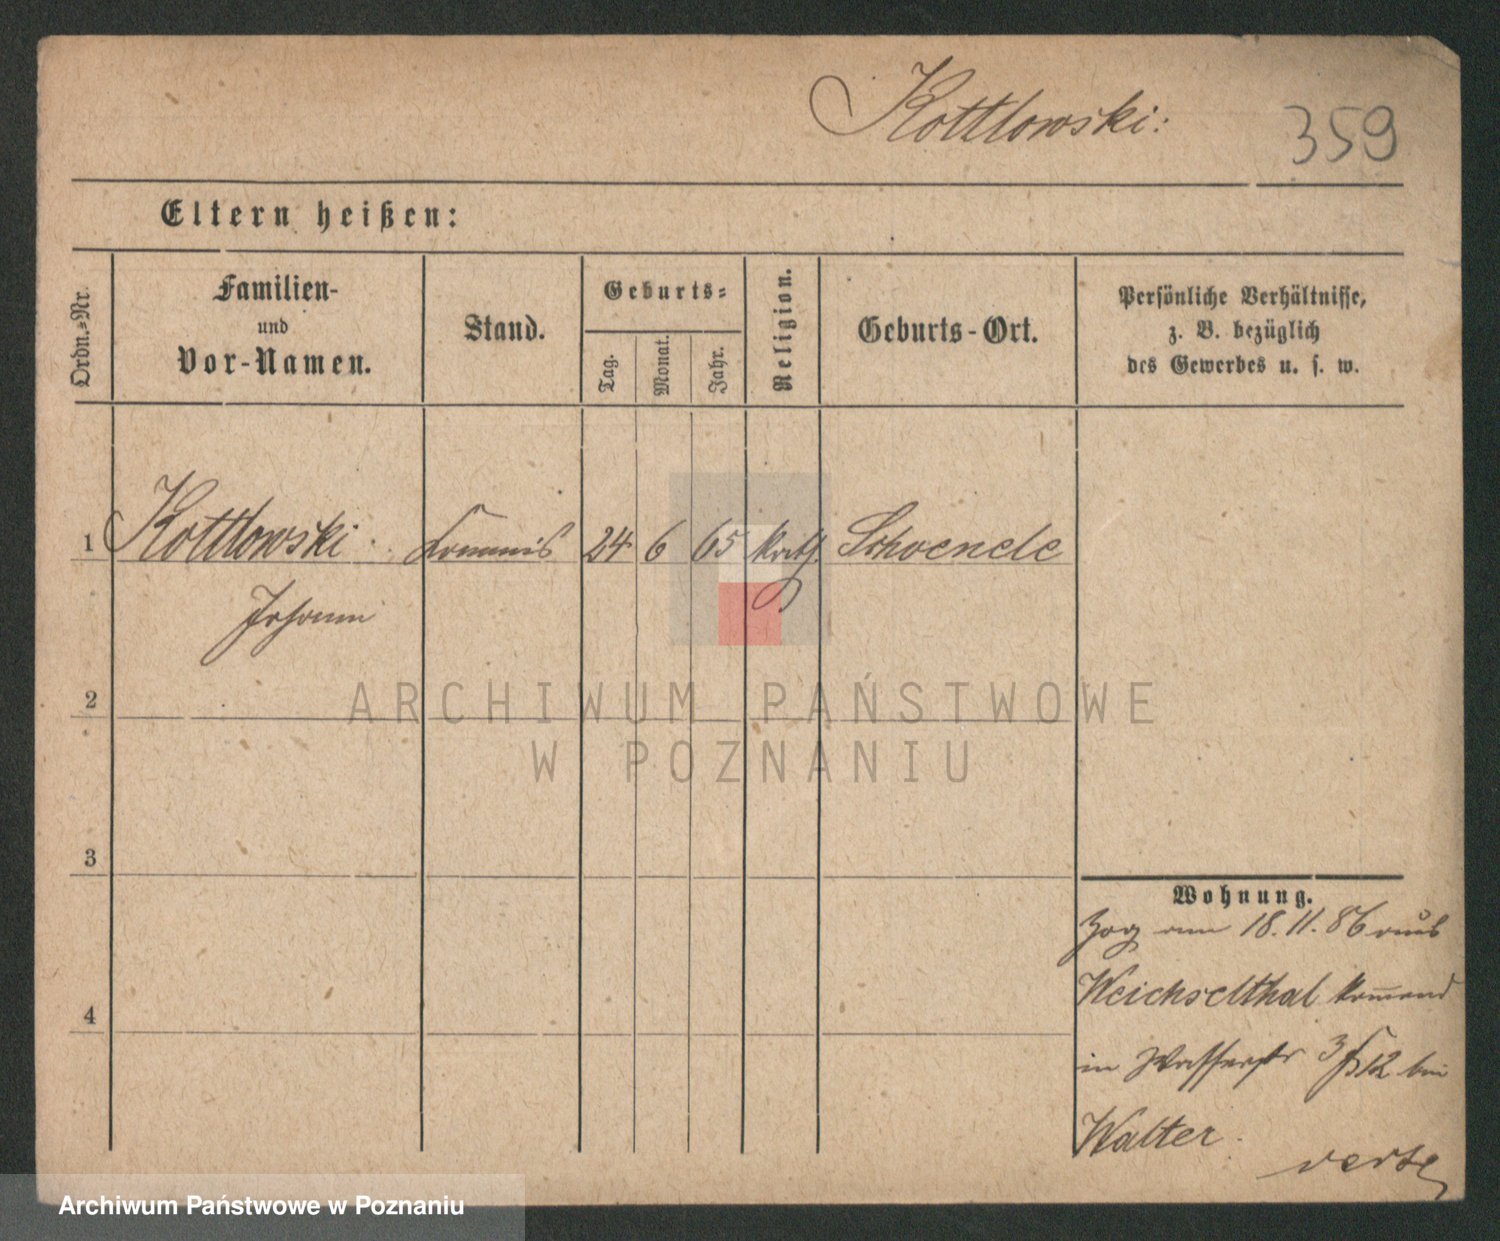 Kottlowski:
359
Eltern heißen:
Ordn.-Nr.
Familien-
und
Vor-Namen.
Stand.
Geburts-
Tag.
Monat.
Jahr.
Religion.
Geburts-Ort.
Persönliche Verhältnisse,
z. B. bezüglich
des Gewerbes u. s. w.
1 Kottlowski Commis 24 6 65 kath. Schoenele
Johann
2
ARCHIWUM PAŃSTWOWE
W POZNANIU
3
4
Wohnung.
Zog am 18.11.86 aus
Weichselthal komend
in Wasserstr 3 12 bei
Walter.
verte
Archiwum Państwowe w Poznaniu